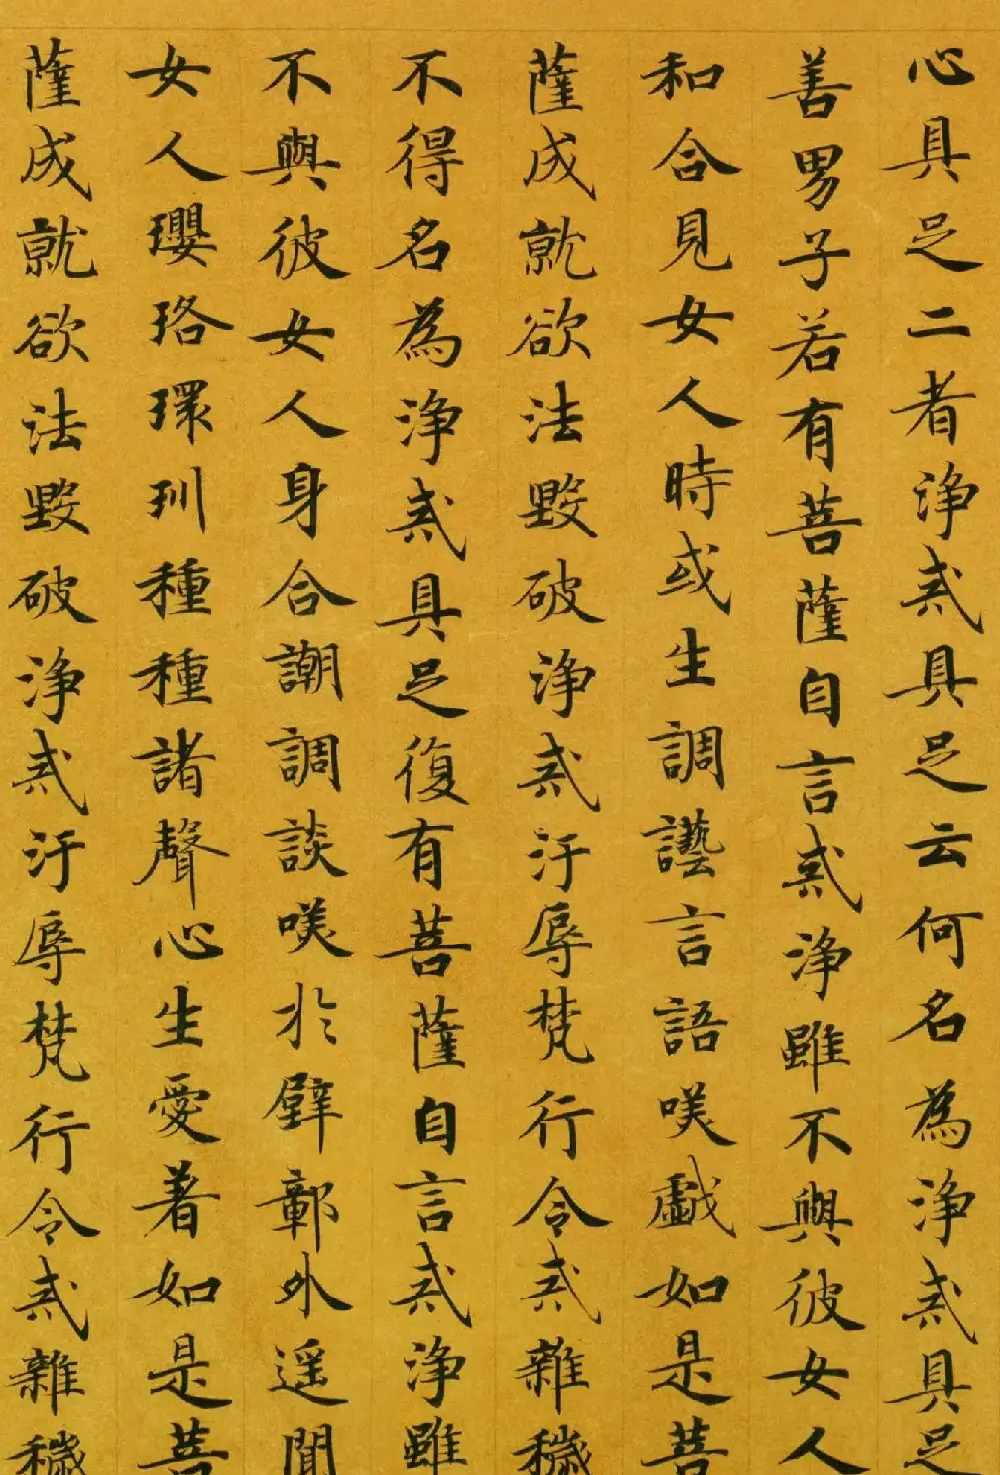 心具足二者淨戒具足云何名為淨戒具足
善男子若有菩薩自言戒淨雖不與彼女人
和合見女人時或生調䜧言語咲戲如是菩
薩成就欲法毀破淨戒汙辱梵行令戒雜穢
不得名為淨戒具足復有菩薩自言戒淨雖
不與彼女人身合嘲調談咲於壁鄣外遥聞
女人瓔珞環玔種種諸聲心生愛著如是菩
薩成就欲法毀破淨戒汙辱梵行令戒雜穢